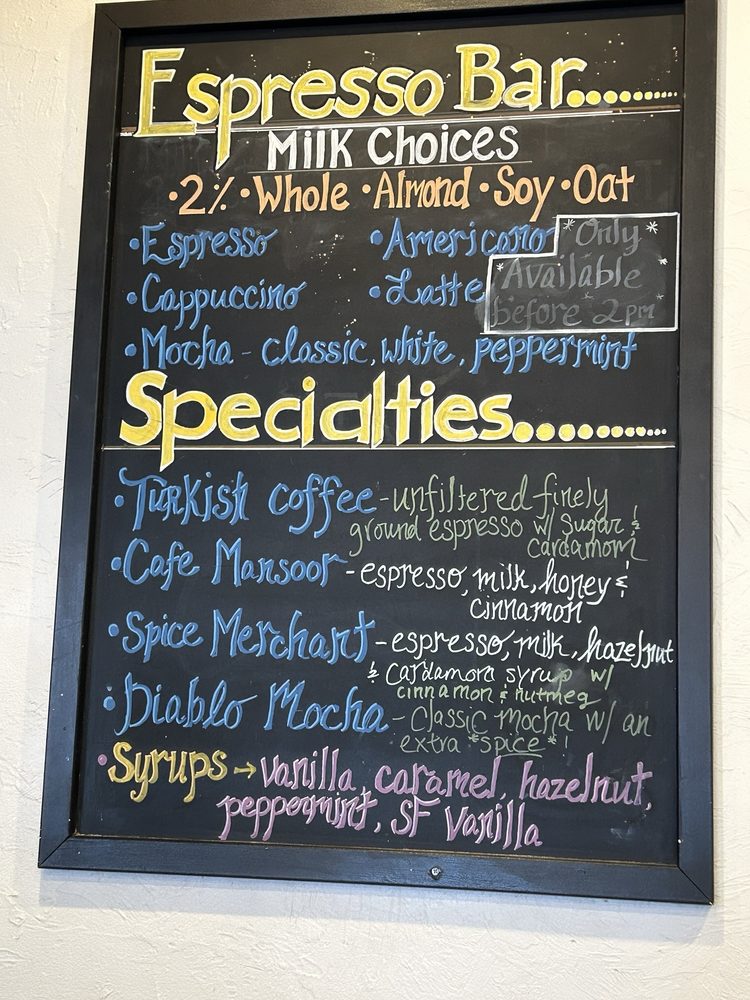 Espresso Bar..........
Milk Choices
•2% •Whole •Almond •Soy •Oat
•Espresso •Americano
•Cappuccino •Latte
*Only*
*Available*
before 2pm
•Mocha - classic, white, peppermint
Specialties..........
•Turkish coffee - unfiltered finely
ground espresso w/ sugar &
cardamom
•Cafe Mansoor - espresso, milk, honey &
cinnamon
•Spice Merchant - espresso, milk, hazelnut
& cardamom syrup w/
cinnamon & nutmeg
•Diablo Mocha - classic mocha w/ an
extra *spice*!
•Syrups → vanilla, caramel, hazelnut,
peppermint, SF Vanilla